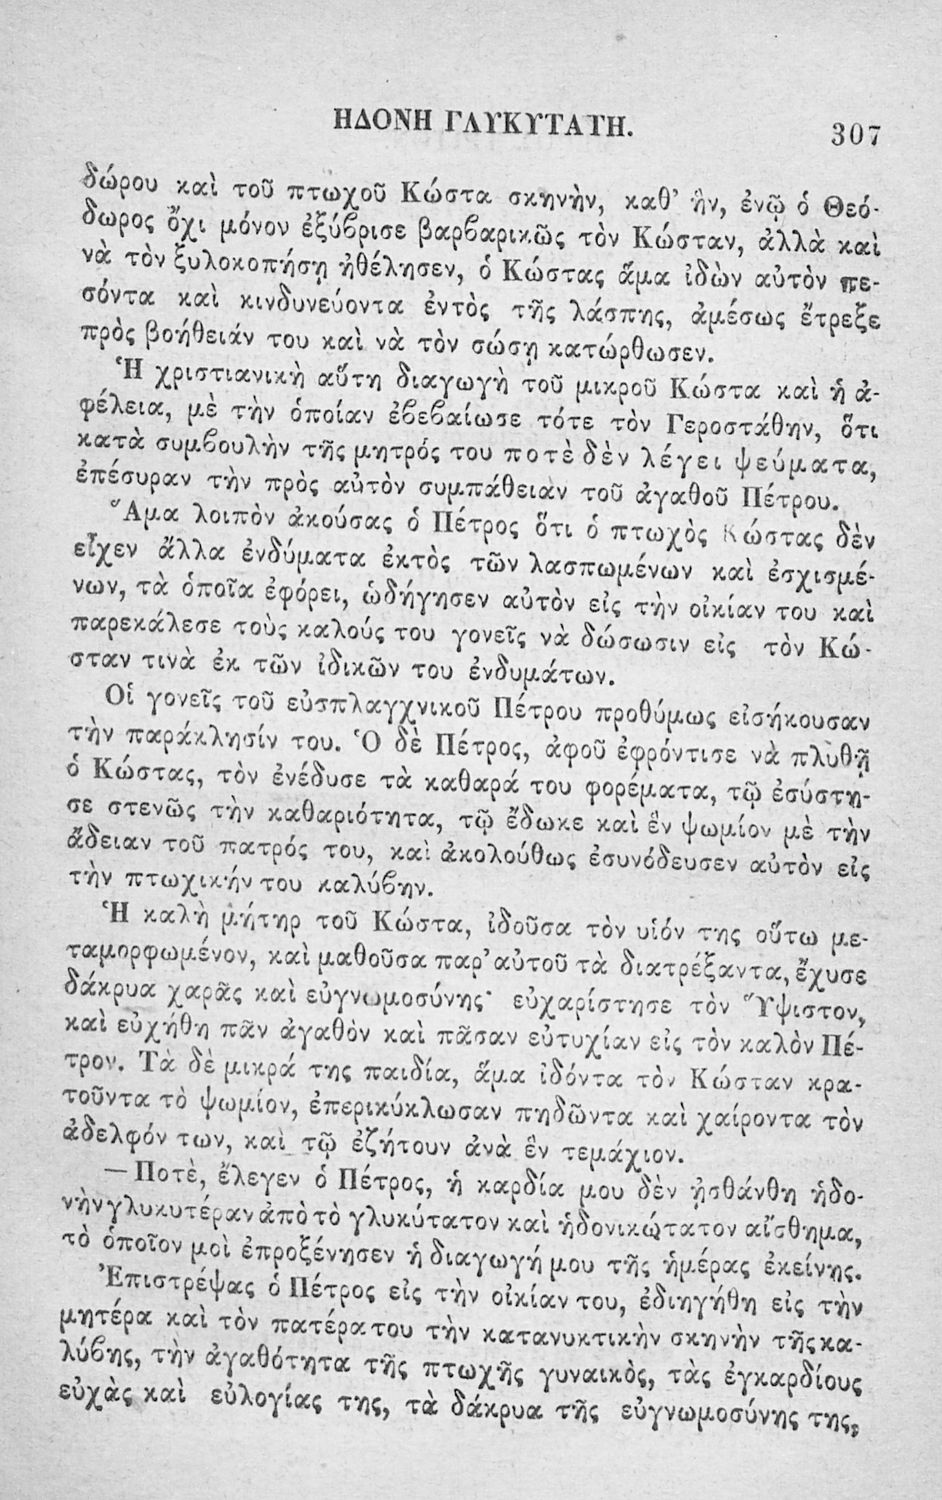 ΗΔΟΝΗ ΓΛΥΚΥΤΑΤΗ.
307
δώρου καὶ τοῦ πτωχοῦ Κώστα σκηνὴν, καθ’ ἣν, ἐνῷ ὁ Θεό-
δωρος ὄχι μόνον ἐξύβρισε βαρβαρικῶς τὸν Κώσταν, ἀλλὰ καὶ
νὰ τὸν ξυλοκοπήσῃ ἠθέλησεν, ὁ Κώστας ἅμα ἰδὼν αὐτὸν πε-
σόντα καὶ κινδυνεύοντα ἐντὸς τῆς λάσπης, ἀμέσως ἔτρεξε
πρὸς βοήθειάν του καὶ νὰ τὸν σώσῃ κατώρθωσεν.
Ἡ χριστιανικὴ αὕτη διαγωγὴ τοῦ μικροῦ Κώστα καὶ ἡ ἀ-
φέλεια, μὲ τὴν ὁποίαν ἐβεβαίωσε τότε τὸν Γεροστάθην, ὅτι
κατὰ συμβουλὴν τῆς μητρός του ποτὲ δὲν λέγει ψεύματα,
ἐπέσυραν τὴν πρὸς αὐτὸν συμπάθειαν τοῦ ἀγαθοῦ Πέτρου.
Ἅμα λοιπὸν ἀκούσας ὁ Πέτρος ὅτι ὁ πτωχὸς Κώστας δὲν
εἶχεν ἄλλα ἐνδύματα ἐκτὸς τῶν λασπωμένων καὶ ἐσχισμέ-
νων, τὰ ὁποῖα ἐφόρει, ὡδήγησεν αὐτὸν εἰς τὴν οἰκίαν του καὶ
παρεκάλεσε τοὺς καλούς του γονεῖς νὰ δώσωσιν εἰς τὸν Κώ-
σταν τινὰ ἐκ τῶν ἰδικῶν του ἐνδυμάτων.
Οἱ γονεῖς τοῦ εὐσπλαγχνικοῦ Πέτρου προθύμως εἰσήκουσαν
τὴν παράκλησίν του. Ὁ δὲ Πέτρος, ἀφοῦ ἐφρόντισε νὰ πλυθῇ
ὁ Κώστας, τὸν ἐνέδυσε τὰ καθαρά του φορέματα, τῷ ἐσύστη-
σε στενῶς τὴν καθαριότητα, τῷ ἔδωκε καὶ ἓν ψωμίον μὲ τὴν
ἄδειαν τοῦ πατρός του, καὶ ἀκολούθως ἐσυνόδευσεν αὐτὸν εἰς
τὴν πτωχικήν του καλύβην.
Ἡ καλὴ μήτηρ τοῦ Κώστα, ἰδοῦσα τὸν υἱόν της οὕτω με-
ταμορφωμένον, καὶ μαθοῦσα παρ’ αὐτοῦ τὰ διατρέξαντα, ἔχυσε
δάκρυα χαρᾶς καὶ εὐγνωμοσύνης· εὐχαρίστησε τὸν Ὕψιστον,
καὶ εὐχήθη πᾶν ἀγαθὸν καὶ πᾶσαν εὐτυχίαν εἰς τὸν καλὸν Πέ-
τρον. Τὰ δὲ μικρά της παιδία, ἅμα ἰδόντα τὸν Κώσταν κρα-
τοῦντα τὸ ψωμίον, ἐπερικύκλωσαν πηδῶντα καὶ χαίροντα τὸν
ἀδελφόν των, καὶ τῷ ἐζήτουν ἀνὰ ἓν τεμάχιον.
— Ποτὲ, ἔλεγεν ὁ Πέτρος, ἡ καρδία μου δὲν ᾐσθάνθη ἡδο-
νὴν γλυκυτέραν ἀπὸ τὸ γλυκύτατον καὶ ἡδονικώτατον αἴσθημα,
τὸ ὁποῖον μοὶ ἐπροξένησεν ἡ διαγωγή μου τῆς ἡμέρας ἐκείνης.
Ἐπιστρέψας ὁ Πέτρος εἰς τὴν οἰκίαν του, ἐδιηγήθη εἰς τὴν
μητέρα καὶ τὸν πατέρα του τὴν κατανυκτικὴν σκηνὴν τῆς κα-
λύβης, τὴν ἀγαθότητα τῆς πτωχῆς γυναικὸς, τὰς ἐγκαρδίους
εὐχὰς καὶ εὐλογίας της, τὰ δάκρυα τῆς εὐγνωμοσύνης της,